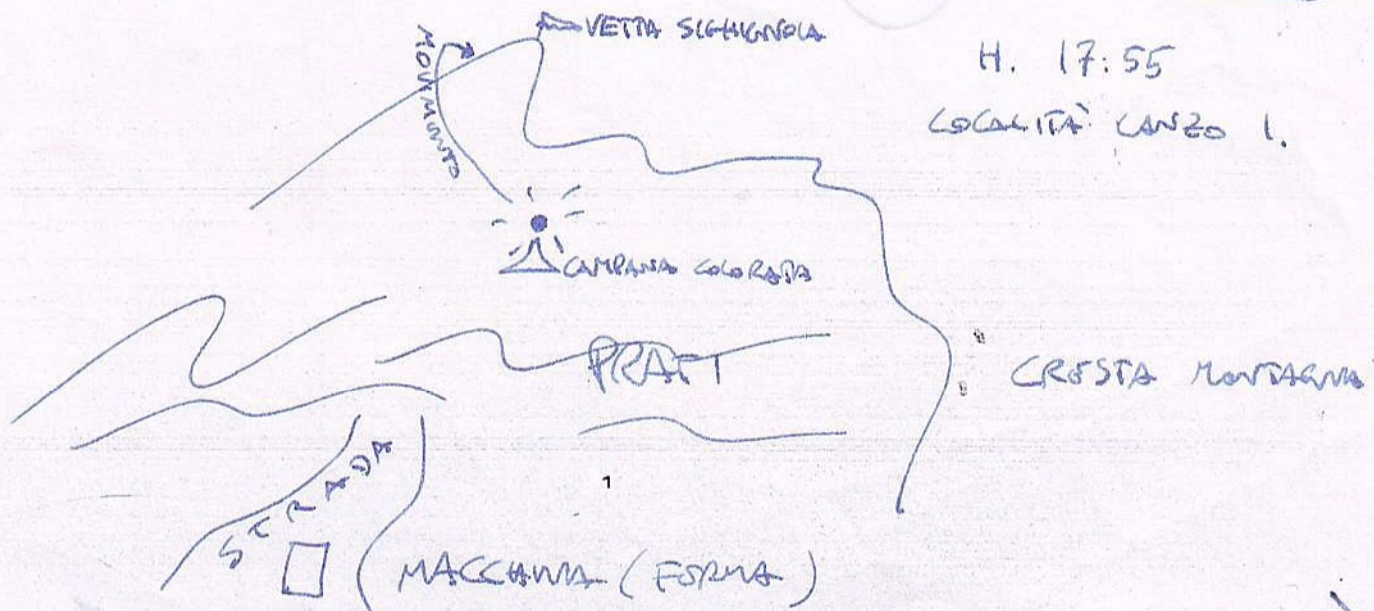 VETTA SIGHIGNOLA
H. 17:55
LOCALITÀ LANZO I.
MOVIMENTO
CAMPANA COLORATA
PRATI
CRESTA MONTAGNA
STRADA
1
MACCHINA (FERMA)